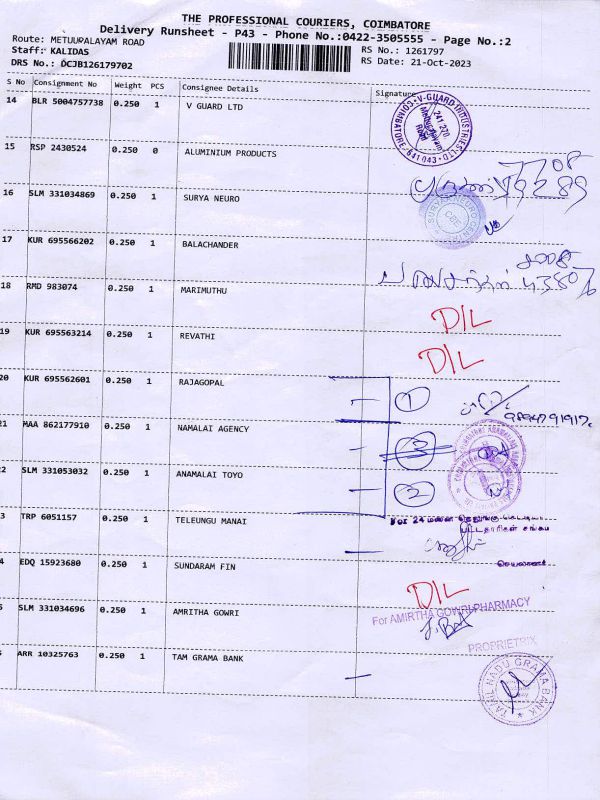 THE PROFESSIONAL COURIERS, COIMBATORE
Delivery Runsheet - P43 - Phone No.:0422-3505555 - Page No.:2
Route: METUUPALAYAM ROAD
RS No.: 1261797
Staff: KALIDAS
RS Date: 21-Oct-2023
DRS No.: DCJB126179702
S No Consignment No Weight PCS Consignee Details Signature
14 BLR 5004757738 0.250 1 V GUARD LTD
V-GUARD INDUSTRIES LTD COIMBATORE-641 043
15 RSP 2430524 0.250 0 ALUMINIUM PRODUCTS
16 SLM 331034869 0.250 1 SURYA NEURO
17 KUR 695566202 0.250 1 BALACHANDER
18 RMD 983074 0.250 1 MARIMUTHU
D/L
19 KUR 695563214 0.250 1 REVATHI
D/L
20 KUR 695562601 0.250 1 RAJAGOPAL
1
21 MAA 862177910 0.250 1 NAMALAI AGENCY
2 SLM 331053032 0.250 1 ANAMALAI TOYO
2
3 TRP 6051157 0.250 1 TELEUNGU MANAI
For 24 மனை தெலுங்கு
செயலாளர்
4 EDQ 15923680 0.250 1 SUNDARAM FIN
D/L
5 SLM 331034696 0.250 1 AMRITHA GOWRI
For AMIRTHA GOWRI PHARMACY
PROPRIETRIX
ARR 10325763 0.250 1 TAM GRAMA BANK
TAMIL NADU GRAMA BANK